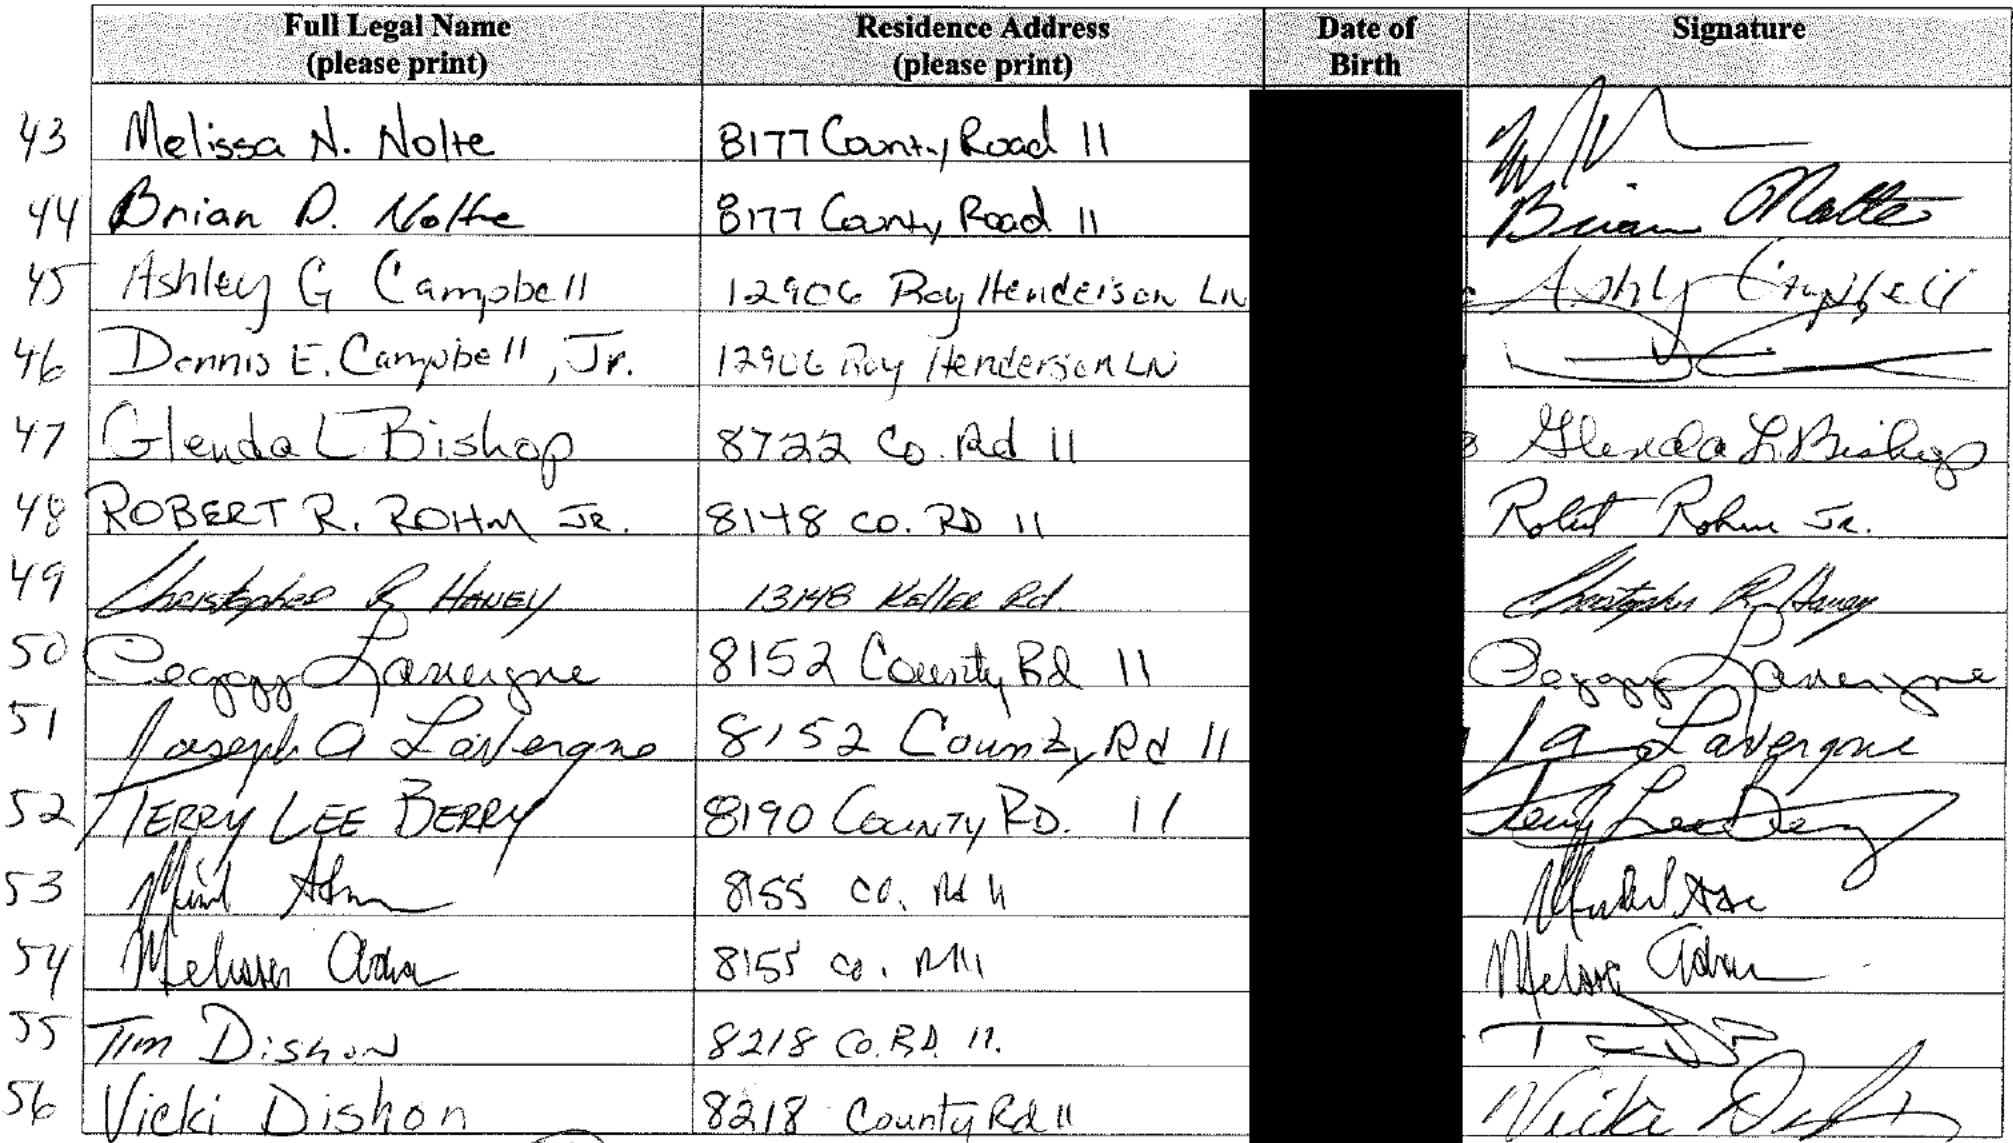 Full Legal Name (please print) Residence Address (please print) Date of Birth Signature
43 Melissa N. Nolte 8177 County Road 11
44 Brian D. Nolte 8177 County Road 11 Brian Nolte
45 Ashley G Campbell 12906 Roy Henderson LN Ashly Campbell
46 Dennis E. Campbell, Jr. 12906 Roy Henderson LN
47 Glenda L Bishop 8722 Co. Rd 11 Glenda L. Bishop
48 ROBERT R. ROHM JR. 8148 CO. RD 11 Robert Rohm Jr.
49 Christopher R HANEY 13148 Keller Rd. Christopher R Haney
50 Peggy Lavergne 8152 County Rd 11 Peggy Lavergne
51 Joseph A LaVergne 8152 County Rd 11 J A LaVergne
52 TERRY LEE BERRY 8190 COUNTY RD. 11 Terry Lee Berry
53 8155 CO. Rd 11
54 Melissa 8155 CO. Melissa
55 Tim Dishon 8218 CO. RD. 11.
56 Vicki Dishon 8218 County Rd 11 Vicki